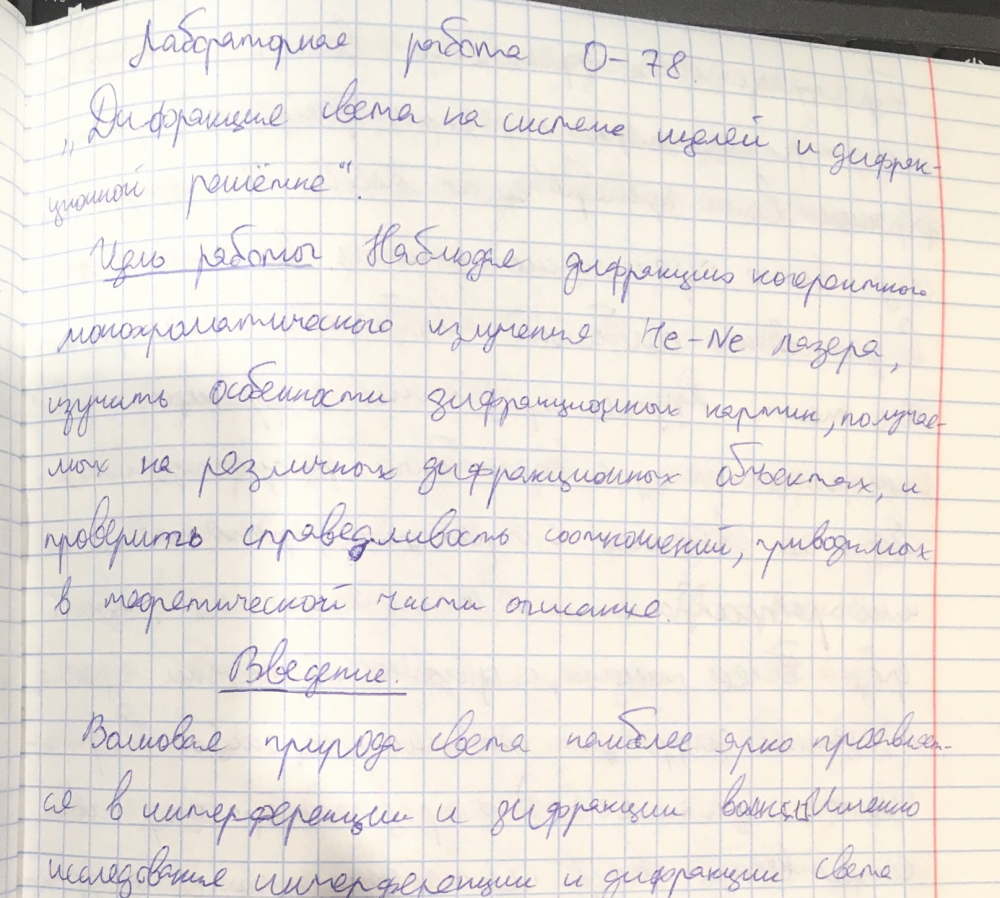 Лабораторная работа О-78.
„Дифракция света на системе щелей и дифрак-
ционной решётке".
Цель работы Наблюдая дифракцию когерентного
монохроматического излучения He-Ne лазера,
изучить особенности дифракционных картин, получае-
мых на различных дифракционных объектах, и
проверить справедливость соотношений, приводимых
в теоретической части описания.
Введение.
Волновая природа света наиболее ярко проявляет-
ся в интерференции и дифракции волны. Именно
исследования интерференции и дифракции света